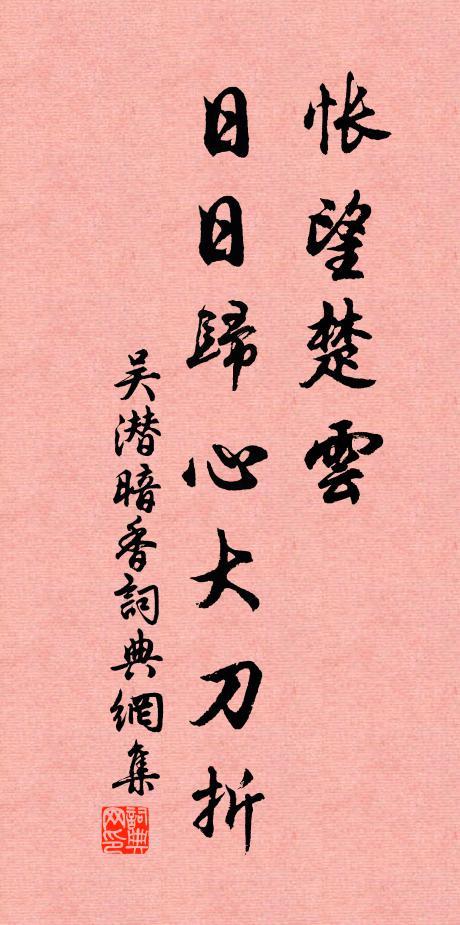 怅望楚雲
日日歸心大刀折
吴潜暗香詞典網集
詞典网印